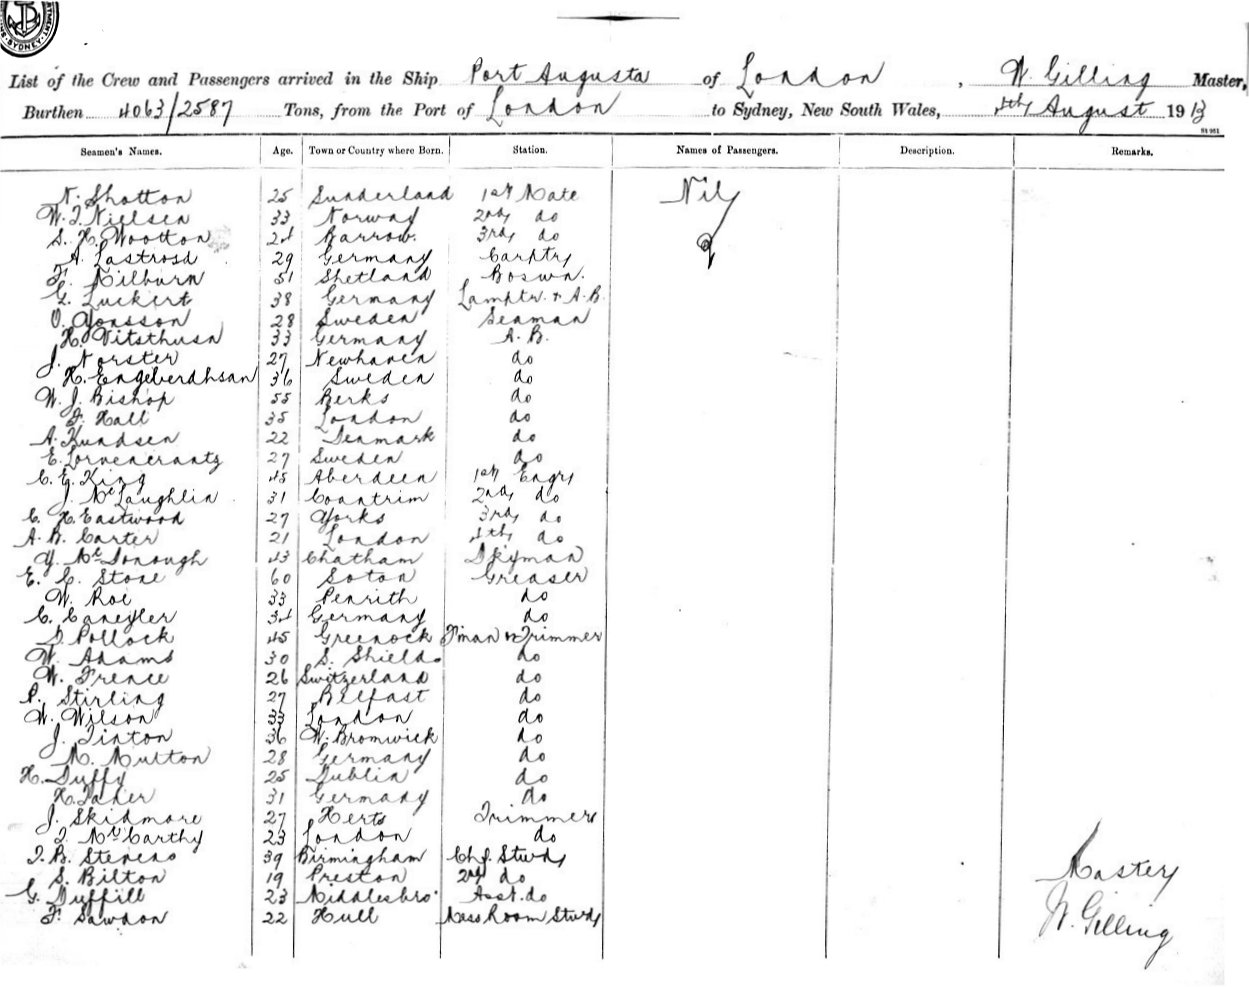 SYDNEY
List of the Crew and Passengers arrived in the Ship Port Augusta of London, W. Gilling Master,
Burthen 4063/2587 Tons, from the Port of London to Sydney, New South Wales, 4th August 1913
Seamen's Names. Age. Town or Country where Born. Station. Names of Passengers. Description. Remarks.
N. Shotton 25 Sunderland 1st Mate Nil
W. J. Nielsen 33 Norway 2nd do
S. H. Wootton 24 Barrow. 3rd do
A. Lastrosd 29 Germany Carptr
F. Milburn 51 Shetland Boswn.
G. Luckert 38 Germany Lamptr. & A.B.
O. Yonsson 28 Sweden Seaman
H. Vitsthusn 33 Germany A.B.
J. Norster 27 Newhaven do
H. Engeberdhsan 36 Sweden do
W. J. Bishop 55 Berks do
F. Hall 35 London do
A. Kundsen 22 Denmark do
E. Lorvenerantz 27 Sweden do
C. E. King 45 Aberdeen 1st Engr
J. McLaughlin 31 Coantrim 2nd do
C. H. Eastwood 27 Yorks 3rd do
A. B. Carter 21 London 4th do
Y. McDonough 43 Chatham Dkyman
E. C. Stone 60 Soton Greaser
W. Roe 33 Penrith do
C. Caneyler 34 Germany do
D. Pollock 45 Greenock F'man & Trimmer
W. Adams 30 S. Shields do
W. Frence 26 Switzerland do
P. Stirling 27 Belfast do
W. Wilson 33 London do
J. Tinton 36 W. Bromwick do
M. Mutton 28 Germany do
H. Duffy 25 Dublin do
H. Daher 31 Germany do
J. Skidmore 27 Herts Trimmer
J. McCarthy 23 London do
T. B. Stevens 39 Birmingham Chf. Stwd
S. Bilton 19 Preston 2nd do Master
G. Duffill 23 Middlesbro' Asst. do
F. Sawdon 22 Hull Mess Room Stwd W. Gilling